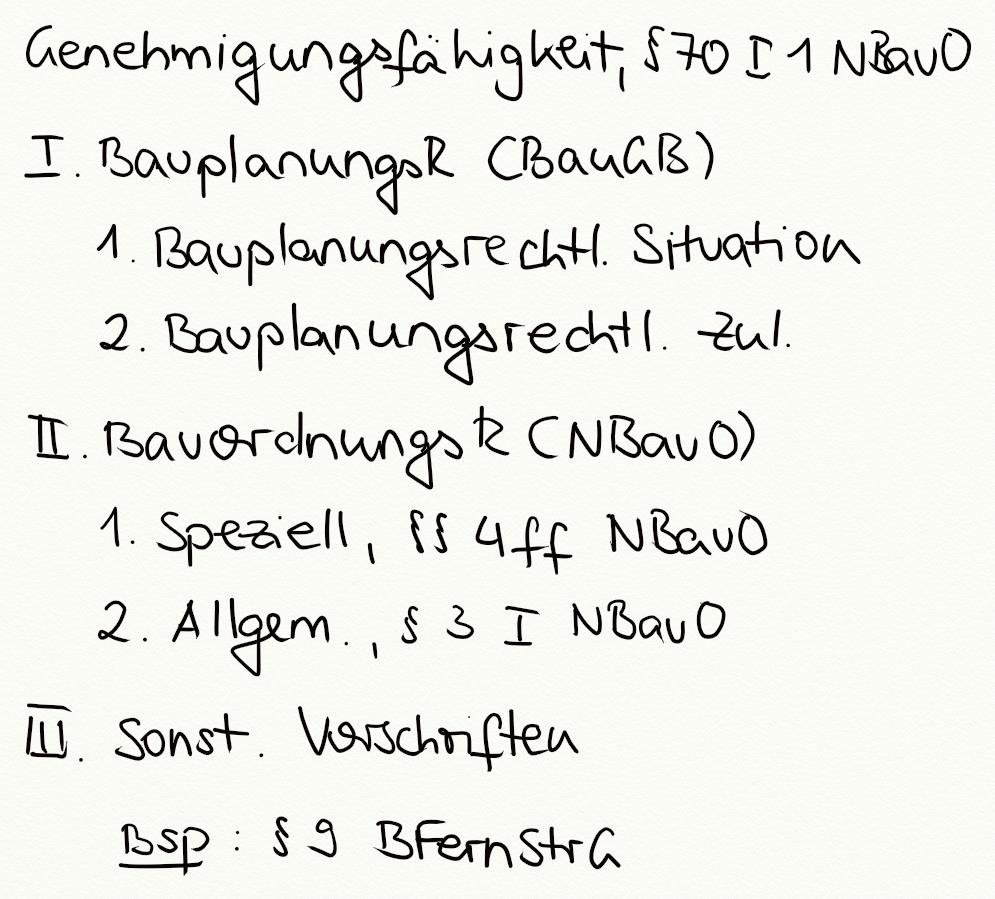 Genehmigungsfähigkeit, § 70 I 1 NBauO
I. BauplanungsR (BauGB)
1. Bauplanungsrechtl. Situation
2. Bauplanungsrechtl. Zul.
II. BauordnungsR (NBauO)
1. Speziell, §§ 4ff NBauO
2. Allgem., § 3 I NBauO
III. Sonst. Vorschriften
Bsp: § 9 BFernStrG